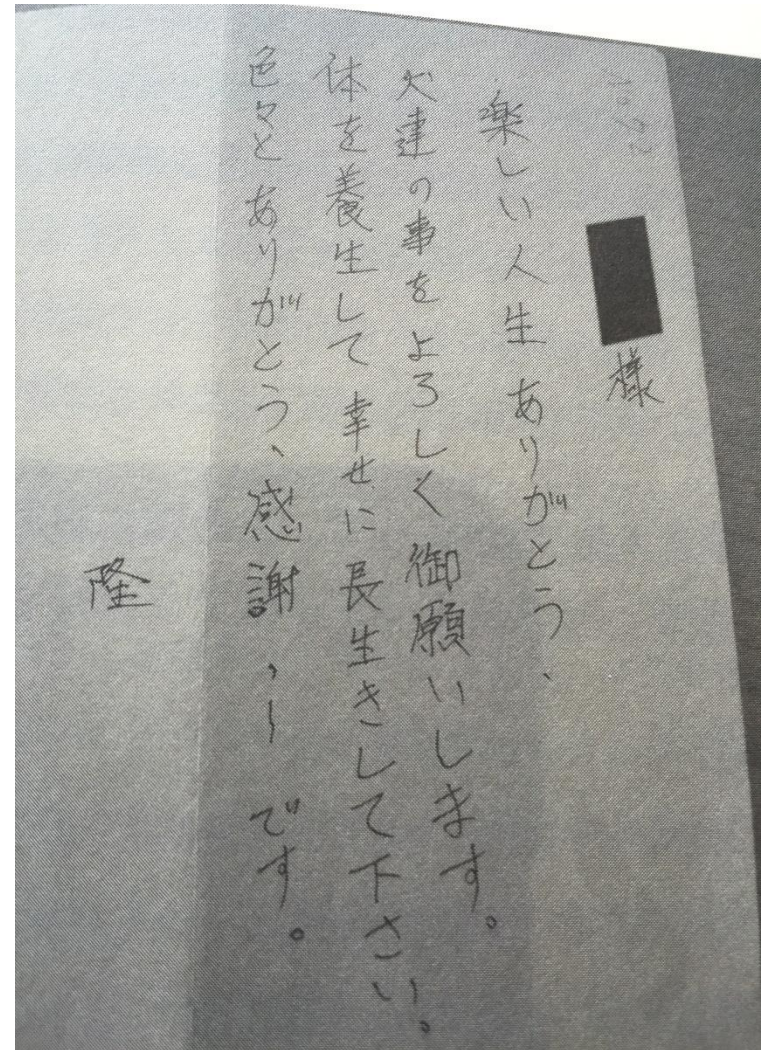 様
楽しい人生ありがとう、
犬達の事をよろしく御願いします。
体を養生して幸せに長生きして下さい。
色々とありがとう、感謝、〜です。
隆